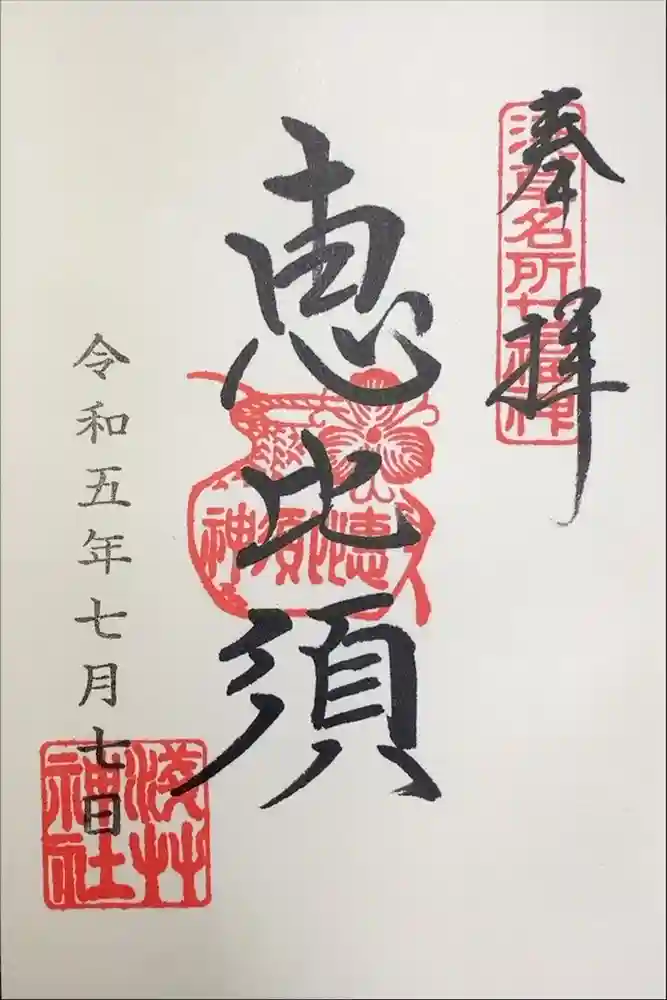 奉拝
浅草名所七福神
恵比須
神須比恵
令和五年七月七日
浅艸
神社